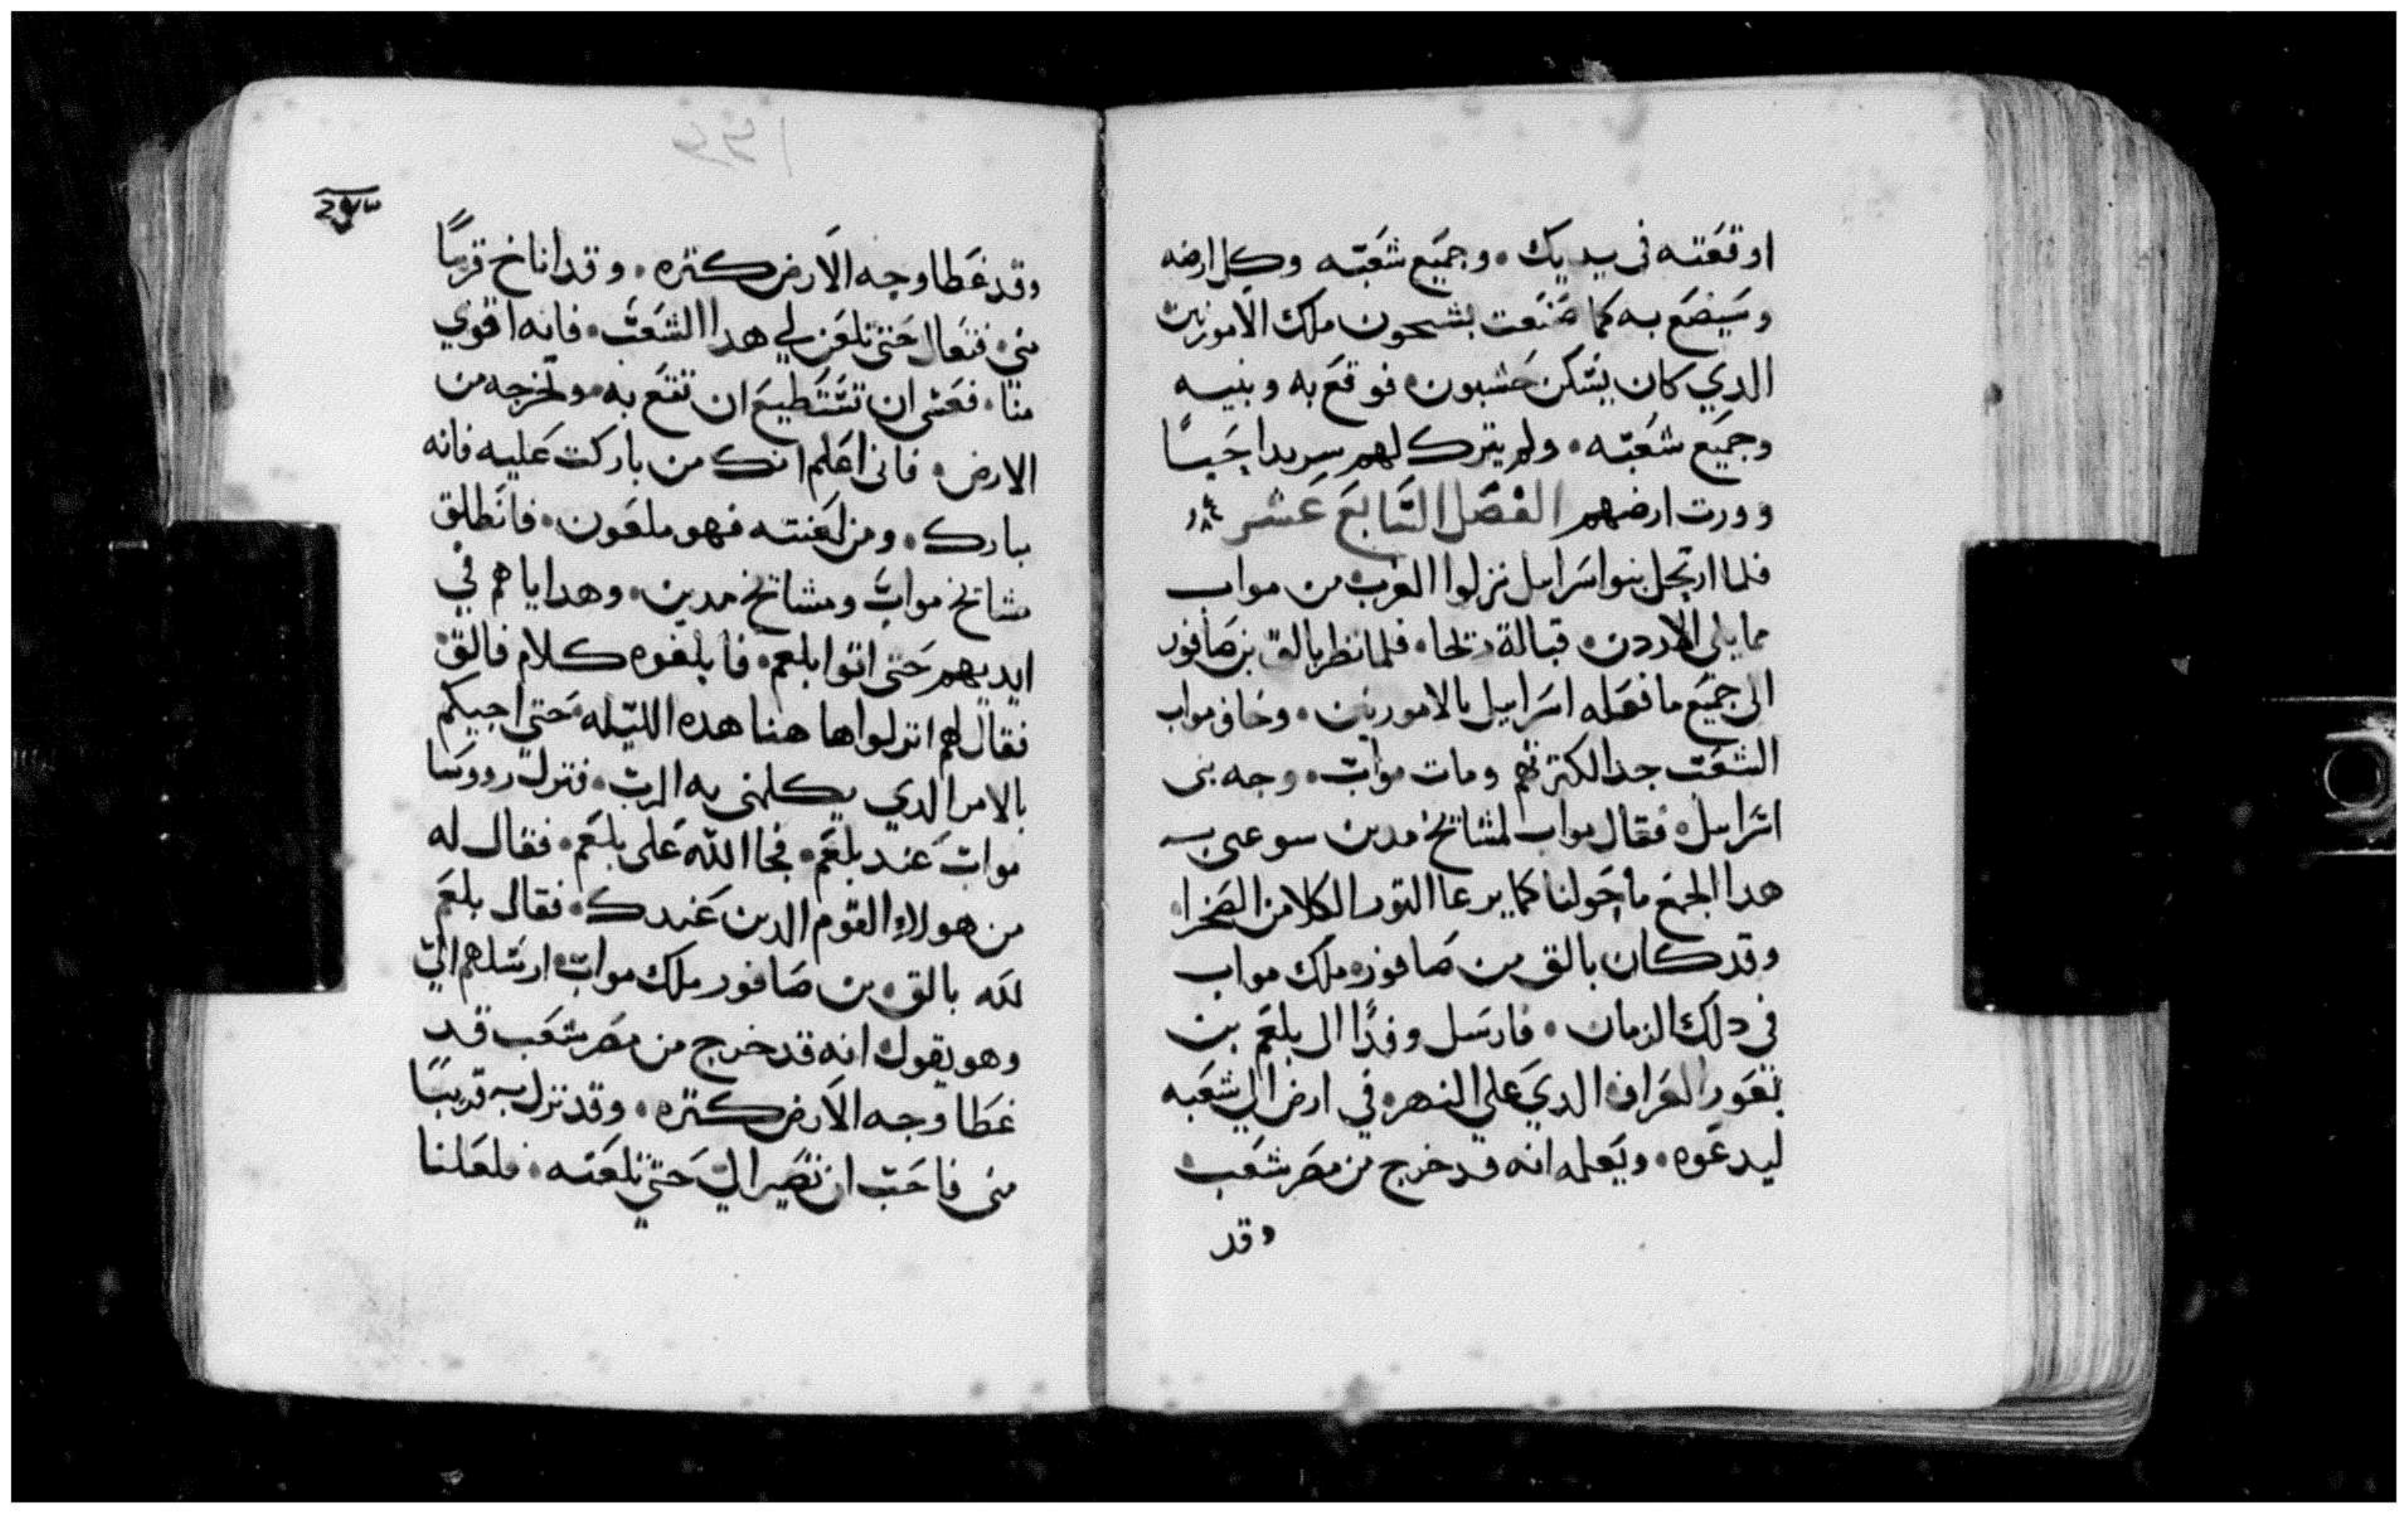 اوقعته فى يديك. وجميع شعبه وكل ارضه
وسيصنع به كما صنعت بشيحون ملك الاموريين
الدي كان يسكن حشبون. فوقع به وبنيه
وجميع شعبه. ولم يترك لهم سريدا حيا
وورت ارضهم الفصل السابع عشر
فلما ارتحل بنوا سراىىل نزلوا الغرب من مواب
مما يلى الاردن. قبالة ريحا. فلما نظر بالق بن صافور
الى جميع ما فعله اسراييل بالاموريين. وخاف مواب
الشعب جدا لكترتهم ومات مواب. وجه بنى
اسراييل. فقال مواب لمشايخ مدين سوعى به
هدا الجمع ما حولنا كما يرعا التور الكلا من الصخرا.
وقد كان بالق بن صافور. ملك مواب
في دلك الزمان. فارسل وفدا الى بلعم بن
بعور العراف الدي علي النهر. في ارض الي شعبه
ليدعوه. ويعلمه انه قد خرج من مصر شعب
وقد
وقد غطا وجه الارض كتره. وقد اناخ قريبا
منى. فتعال حتى تلعن لي هدا الشعب. فانه اقوي
منا. فعسى ان تستطيع ان تقع به. وتخرجه من
الارض. فانى اعلم انك من باركت عليه فانه
يبارك. ومن لعنته فهو ملعون. فانطلق
مشايخ مواب ومشايخ مدين. وهداياهم في
ايديهم حتى اتوا بلعم. فابلغوه كلام فالق
فقال لهم انزلوا ها هنا هده الليله. حتى اجيبكم
بالامر الدي يكلمنى به الرب. فنزل رووسا
مواب عند بلعم. فجا الله على بلعم. فقال له
من هولاء القوم الدين عندك. فقال بلعم
لله بالق. بن صافور ملك مواب ارسلهم الي
وهو يقول انه قد خرج من مصر شعب قد
غطا وجه الارض كتره. وقد نزل به قريبا
منى فاحب ان تصير الي حتي تلعنه. فلعلنا